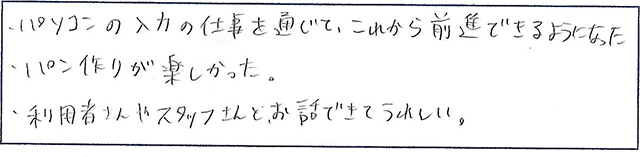 ・パソコンの入力の仕事を通じて、これから前進できるようになった
・パン作りが楽しかった。
・利用者さんやスタッフさんと、お話できてうれしい。